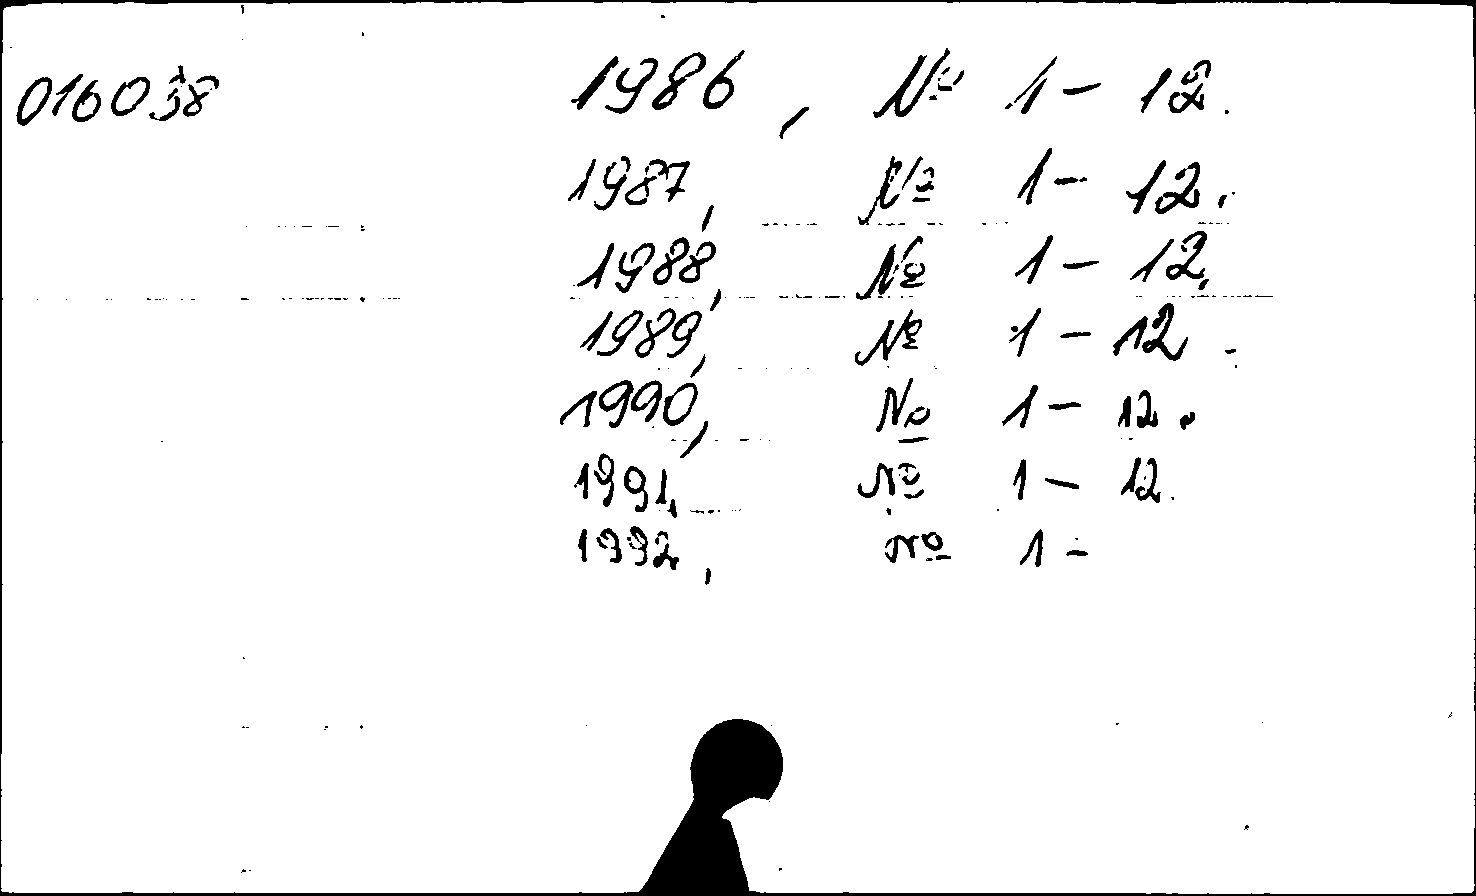 016038 1986, № 1 - 12.
1987, № 1 - 12.
1988, № 1 - 12.
1989, № 1 - 12.
1990, № 1 - 12.
1991, № 1 - 12.
1992, № 1 -